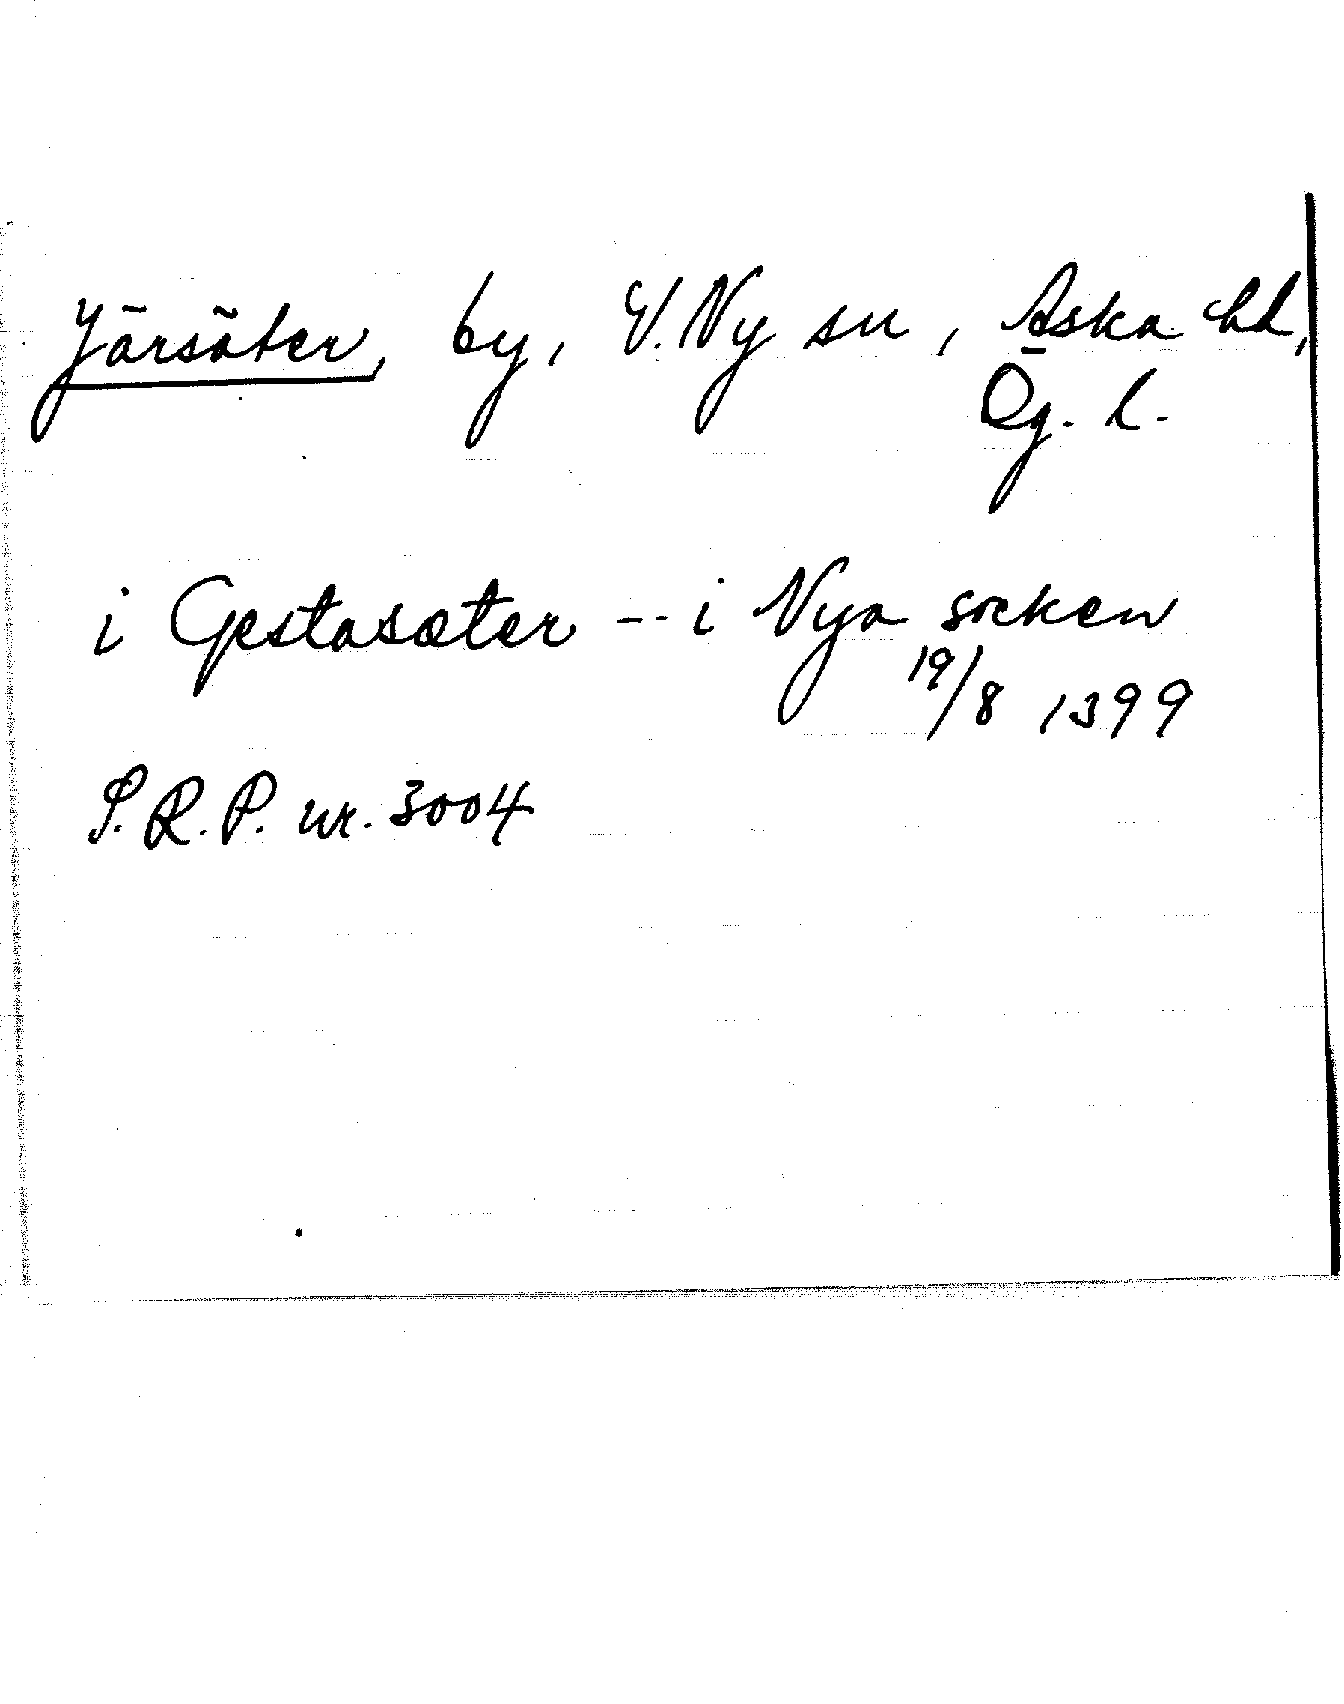 Järsäter, by, V. Ny sn, Aska hd,
Ög. l.
i Gestasæter -- i Nya socken
19/8 1399
S.R.P. nr. 3004